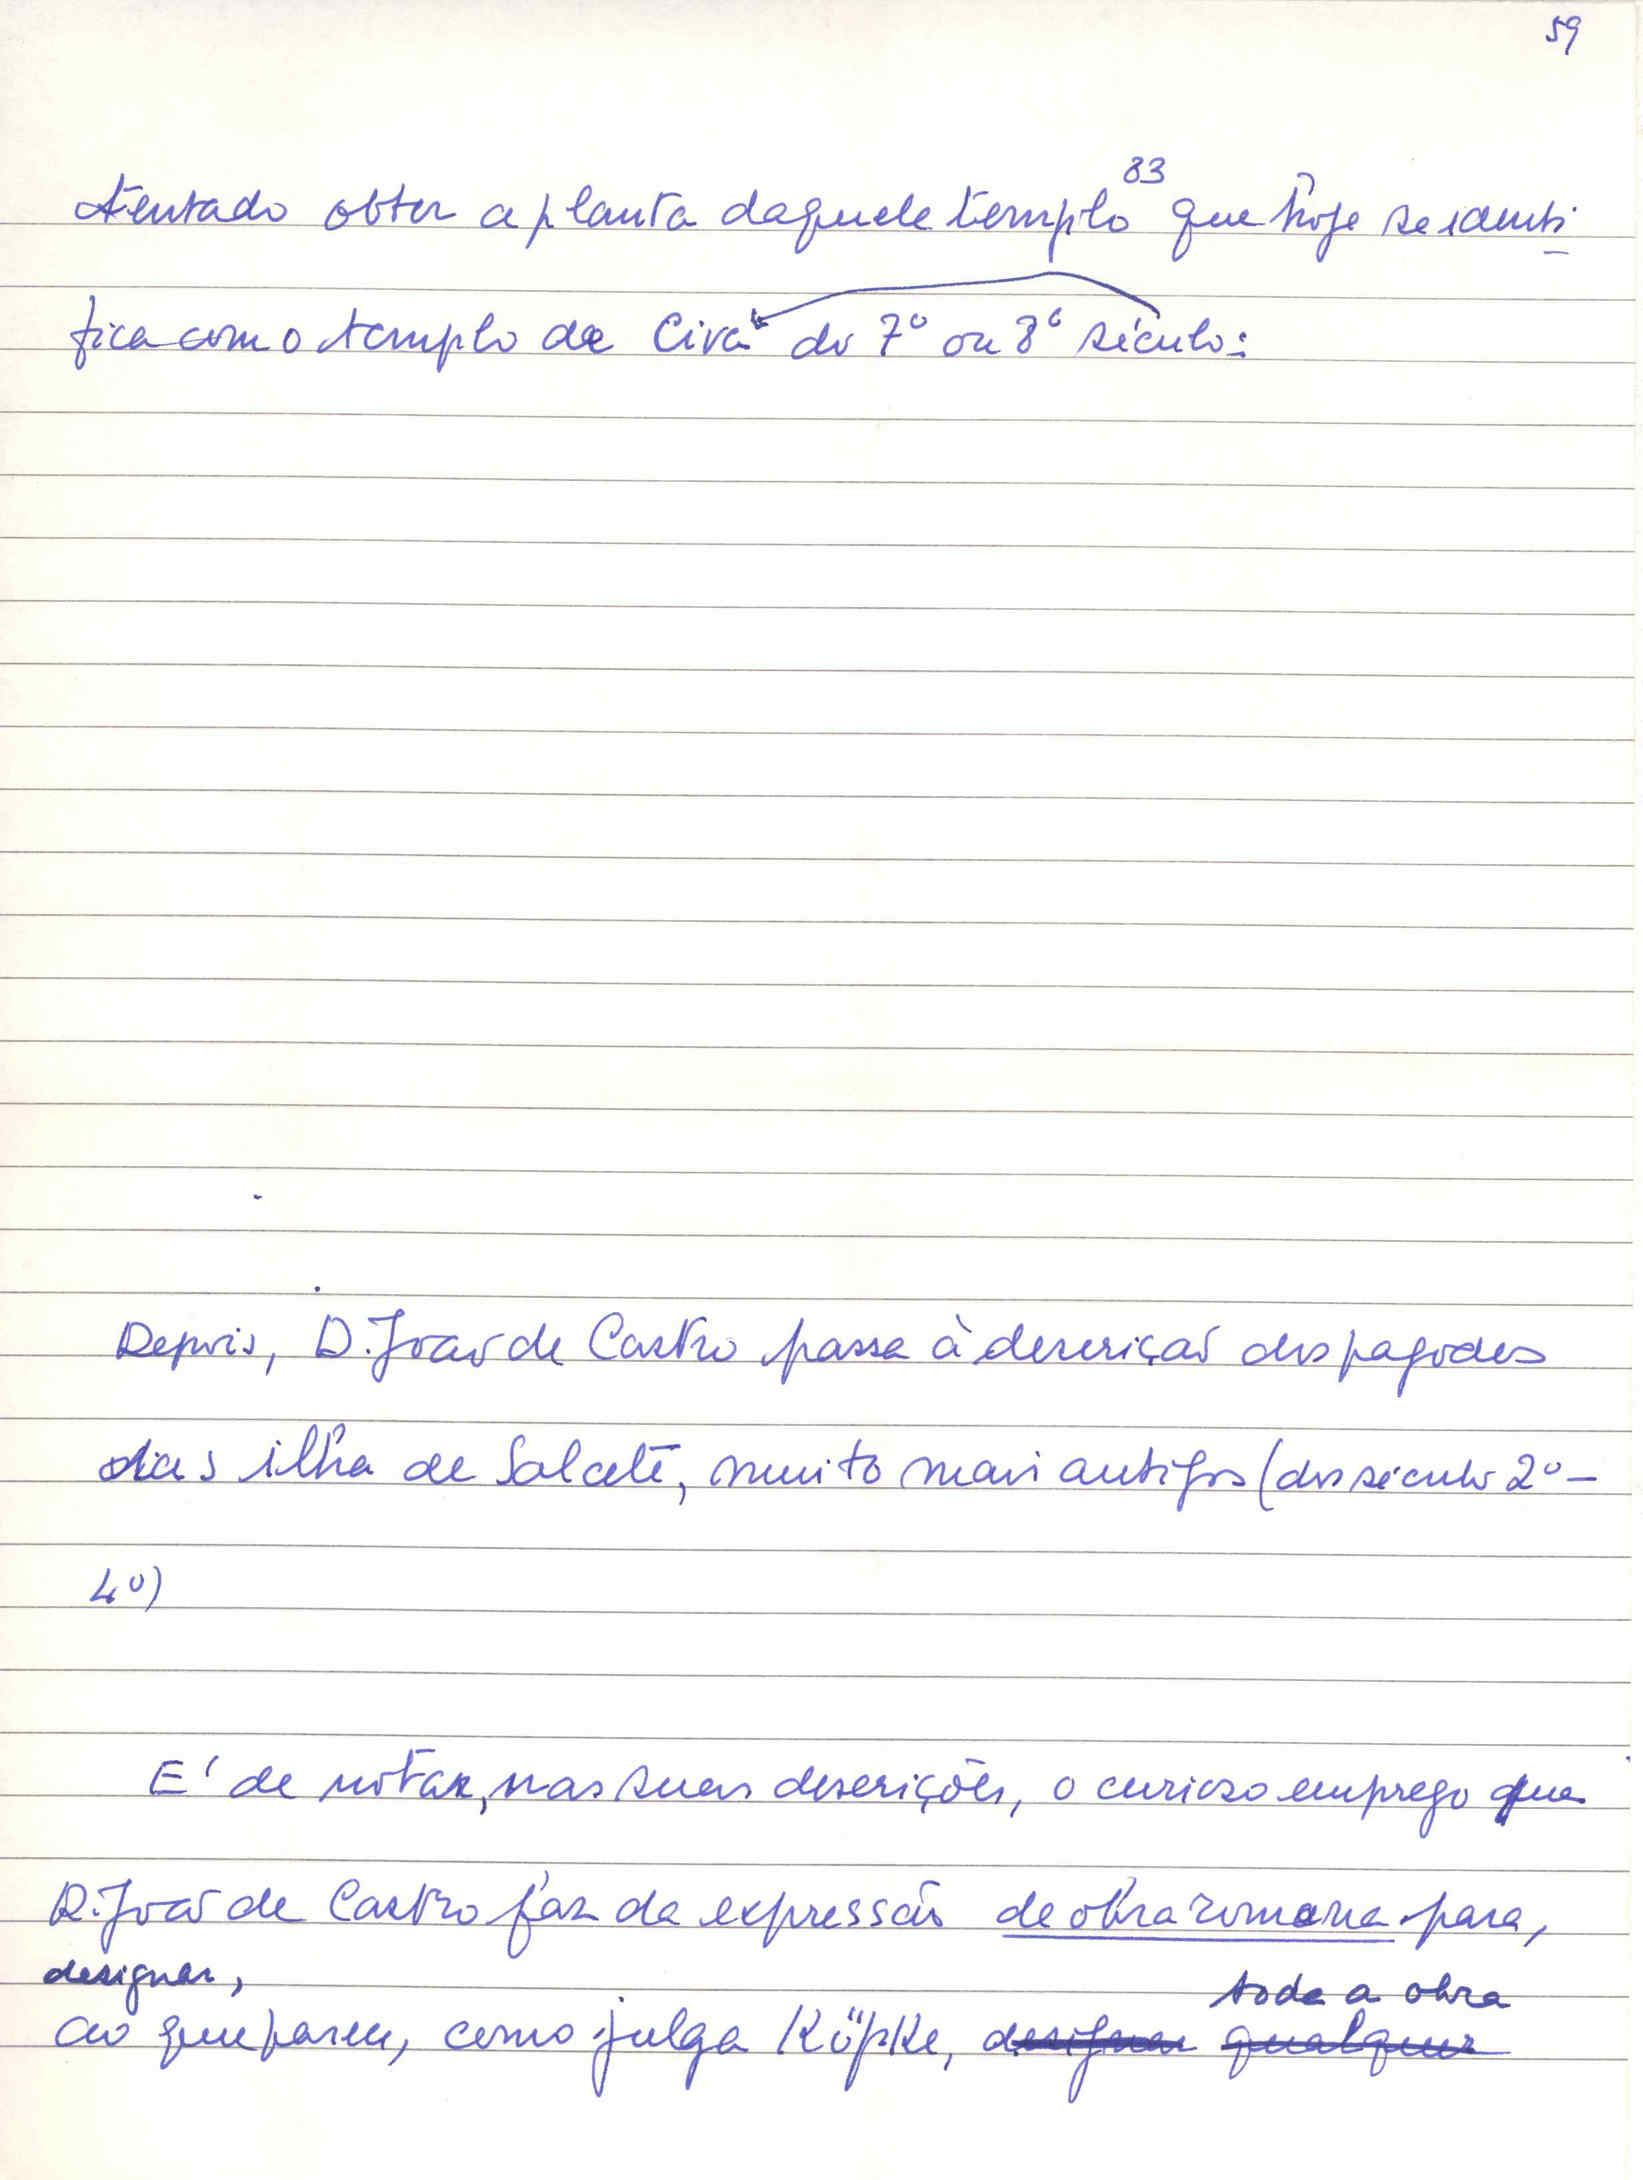 59
83
tentado obter a planta daquele templo que hoje se identi
fica com o templo de Civa do 7º ou 8º século:
Depois, D. João de Castro passa à descrição dos pagodes
das ilha de Salcete, muito mais antigos (dos século 2º-
4º)
E' de notar, nas suas descrições, o curioso emprego que
D. João de Castro faz da expressão de obra romana para,
designar,
toda a obra
ao que parece, como julga Köpke, designar qualquer